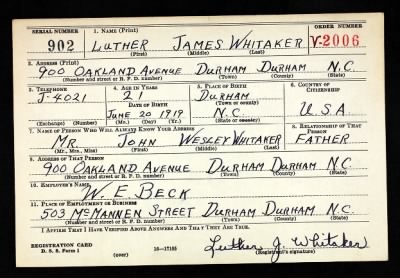 SERIAL NUMBER 1. NAME (Print) ORDER NUMBER
902 LUTHER JAMES WHITAKER V-2006
(First) (Middle) (Last)
2. ADDRESS (Print)
900 OAKLAND AVENUE DURHAM DURHAM N.C.
(Number and street or R. F. D. number) (Town) (County) (State)
3. TELEPHONE 4. AGE IN YEARS 5. PLACE OF BIRTH 6. COUNTRY OF CITIZENSHIP
J-4021 21 DURHAM
DATE OF BIRTH (Town or county)
JUNE 20 1919 N.C. U.S.A.
(Exchange) (Number) (Mo.) (Day) (Yr.) (State or country)
7. NAME OF PERSON WHO WILL ALWAYS KNOW YOUR ADDRESS 8. RELATIONSHIP OF THAT PERSON
MR. JOHN WESLEY WHITAKER FATHER
(Mr., Mrs., Miss) (First) (Middle) (Last)
9. ADDRESS OF THAT PERSON
900 OAKLAND AVENUE DURHAM DURHAM N.C.
(Number and street or R. F. D. number) (Town) (County) (State)
10. EMPLOYER'S NAME
W. E. BECK
11. PLACE OF EMPLOYMENT OR BUSINESS
503 McMANNEN STREET DURHAM DURHAM N.C.
(Number and street or R. F. D. number) (Town) (County) (State)
I AFFIRM THAT I HAVE VERIFIED ABOVE ANSWERS AND THAT THEY ARE TRUE.
REGISTRATION CARD
D. S. S. Form 1 16-17105 Luther J. Whitaker
(over) (Registrant's signature)